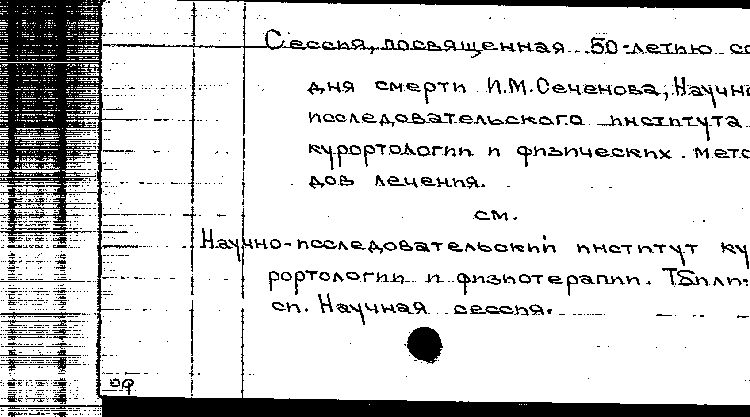 Сессия, посвященная 50-летию со
дня смерти И.М.Сеченова, Научно
исследовательского института
курортологии и физических мето
дов лечения.
см.
Научно-исследовательский институт ку
рортологии и физиотерапии. Тбили-
си. Научная сессия.